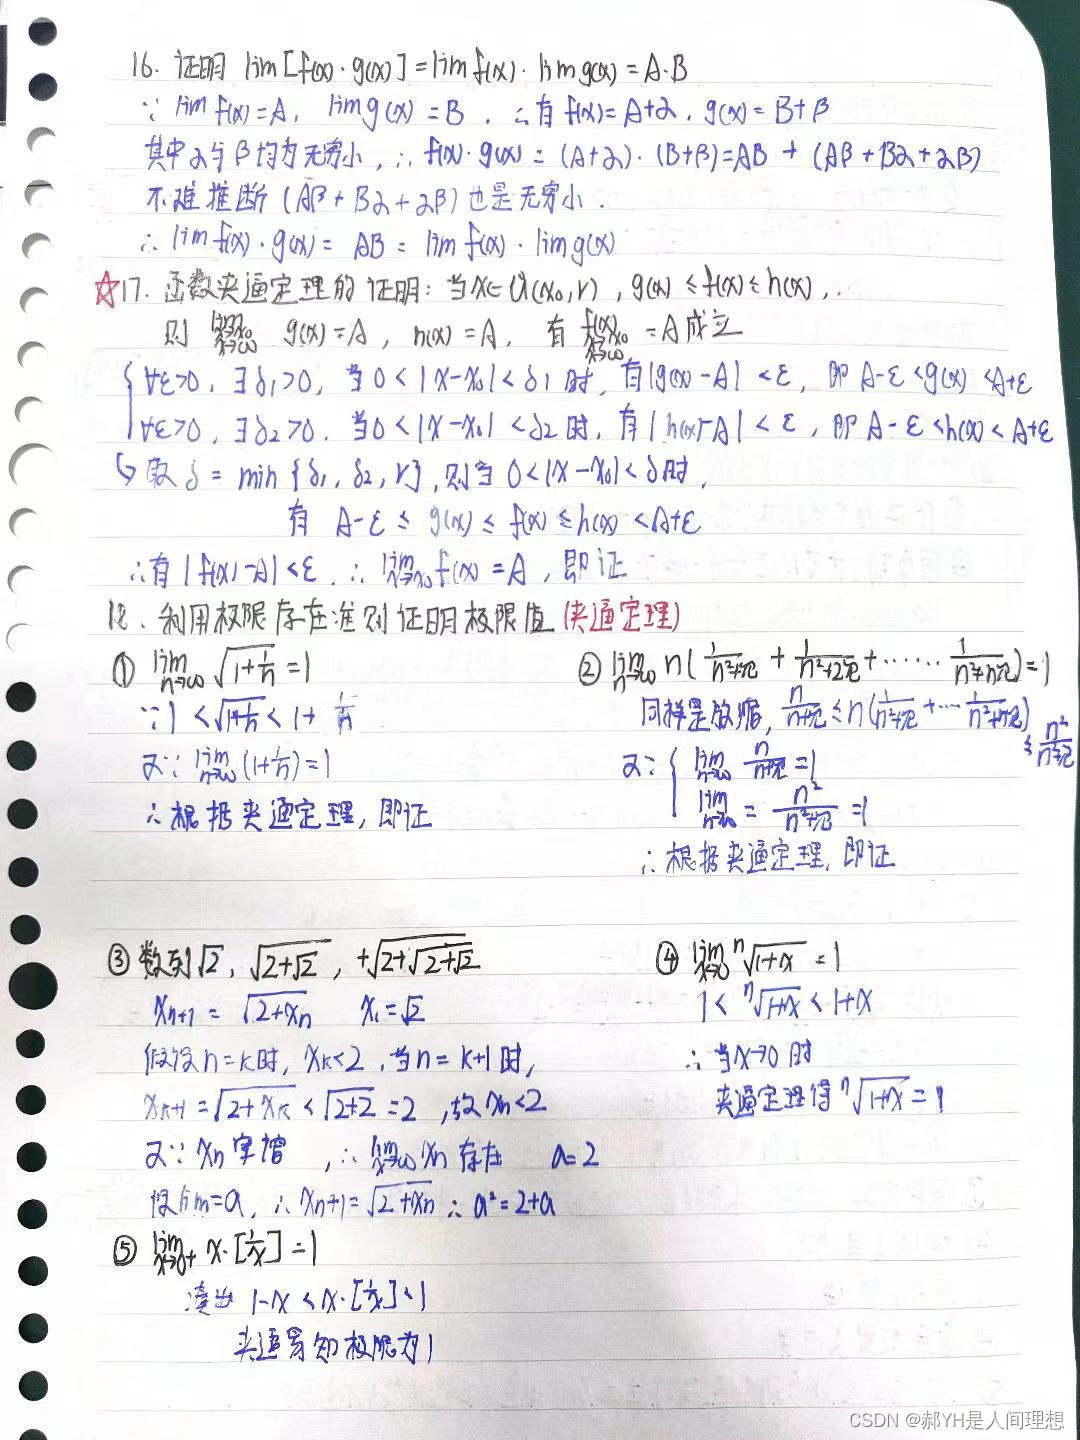 16. 证明 lim[f(x)·g(x)]=limf(x)·limg(x)=A·B
∵ limf(x)=A, limg(x)=B. ∴有 f(x)=A+α, g(x)=B+β
其中α与β均为无穷小, ∴ f(x)·g(x)=(A+α)·(B+β)=AB+(Aβ+Bα+αβ)
不难推断(Aβ+Bα+αβ)也是无穷小.
∴ limf(x)·g(x)= AB = limf(x)·limg(x)
☆17. 函数夹逼定理的证明: 当x∈Ů(x₀,r), g(x)≤f(x)≤h(x),
则 lim x→x₀ x→∞ g(x)=A, h(x)=A, 有 f(x) x→x₀ x→∞ =A成立
∀ε>0, ∃δ₁>0, 当0<|x-x₀|<δ₁时, 有|g(x)-A|<ε, 即 A-ε<g(x)<A+ε
∀ε>0, ∃δ₂>0, 当0<|x-x₀|<δ₂时, 有|h(x)-A|<ε, 即 A-ε<h(x)<A+ε
↪取δ=min{δ₁, δ₂, r}, 则当0<|x-x₀|<δ时,
有 A-ε≤g(x)≤f(x)≤h(x)<A+ε
∴有|f(x)-A|<ε. ∴ lim x→x₀ f(x)=A, 即证
18. 利用极限存在准则证明极限值(夹逼定理)
① lim n→∞ √(1+1/n)=1
∵1<√(1+1/n)<1+1/n
又∵ lim n→∞ (1+1/n)=1
∴根据夹逼定理, 即证
② lim n→∞ n(1/(n²+π)+1/(n²+2π)+……1/(n²+nπ))=1
同样是放缩, n/(n+π)≤n(1/(n²+π)+…1/(n²+nπ))
≤n²/(n²+π)
又∵{ lim n→∞ n/(n+π)=1
lim n→∞ = n²/(n²+π) =1
∴根据夹逼定理, 即证
③ 数列√2, √(2+√2), +√(2+√(2+√2))
xₙ₊₁=√(2+xₙ) x₁=√2
假设n=k时, xₖ<2, 当n=k+1时,
xₖ₊₁=√(2+xₖ)<√(2+2)=2, 故xₙ<2
又∵xₙ单增, ∴ lim x→∞ xₙ存在 a=2
设lim=a, ∴xₙ₊₁=√(2+xₙ) ∴a²=2+a
④ lim x→0 ⁿ√(1+x)=1
1<ⁿ√(1+x)<1+x
∴当x→0时
夹逼定理得ⁿ√(1+x)=1
⑤ lim x→0+ x·[1/x]=1
凑出 1-x<x·[1/x]<1
夹逼易知极限为1
CSDN @郝YH是人间理想